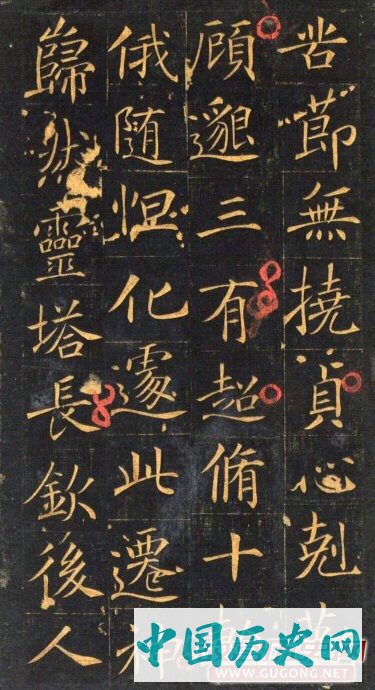 苦莭無撓貞心剋
顧邈三有超脩十
俄随怛化遽此遷
巋然靈塔長欽後人
中国历史网
WWW.GUGONG.NET